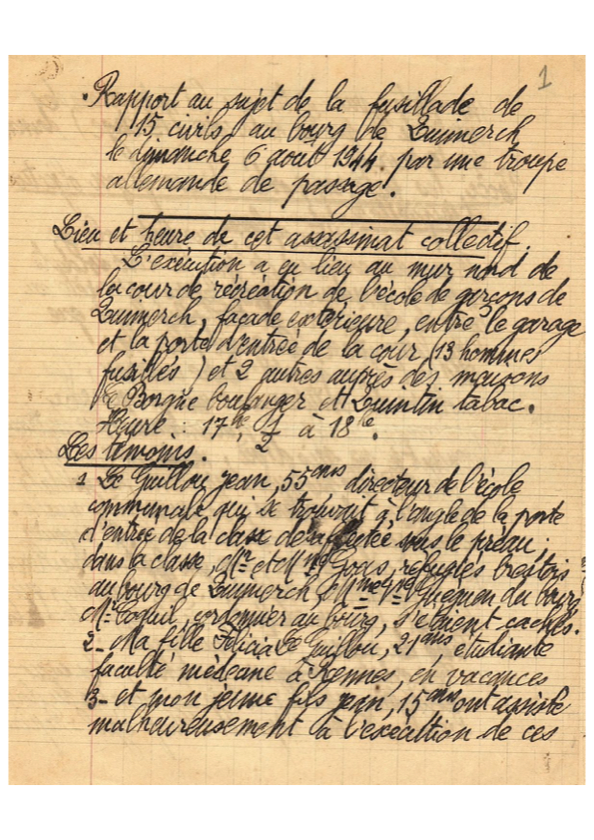 1
Rapport au sujet de la fusillade de
15 civils au bourg de Quimerch
le dimanche 6 août 1944 par une troupe
allemande de passage.
Lieu et heure de cet assassinat collectif.
L'exécution a eu lieu au mur nord de
la cour de récréation de l'école de garçons de
Quimerch, façade extérieure, entre le garage
et la porte d'entrée de la cour (13 hommes
fusillés) et 2 autres auprès des maisons
Le Borgne boulanger et Quintin tabac.
Heure : 17h 1/2 à 18h.
Les témoins.
1 Le Guillou jean, 55 ans directeur de l'école
communale qui se trouvait à l'angle de la porte
d'entrée de la classe désaffectée sous le préau ;
dans la classe, Mr et Mme Goas, réfugiés brestois
au bourg de Quimerch, Mme Vve Guégnon du bourg
Mr Coquil, cordonnier au bourg, s'étaient cachés.
2- Ma fille Félicia Le Guillou, 21 ans, étudiante
faculté médecine à Rennes, en vacances
3- et mon jeune fils jean, 15 ans ont assisté
malheureusement à l'exécution de ces